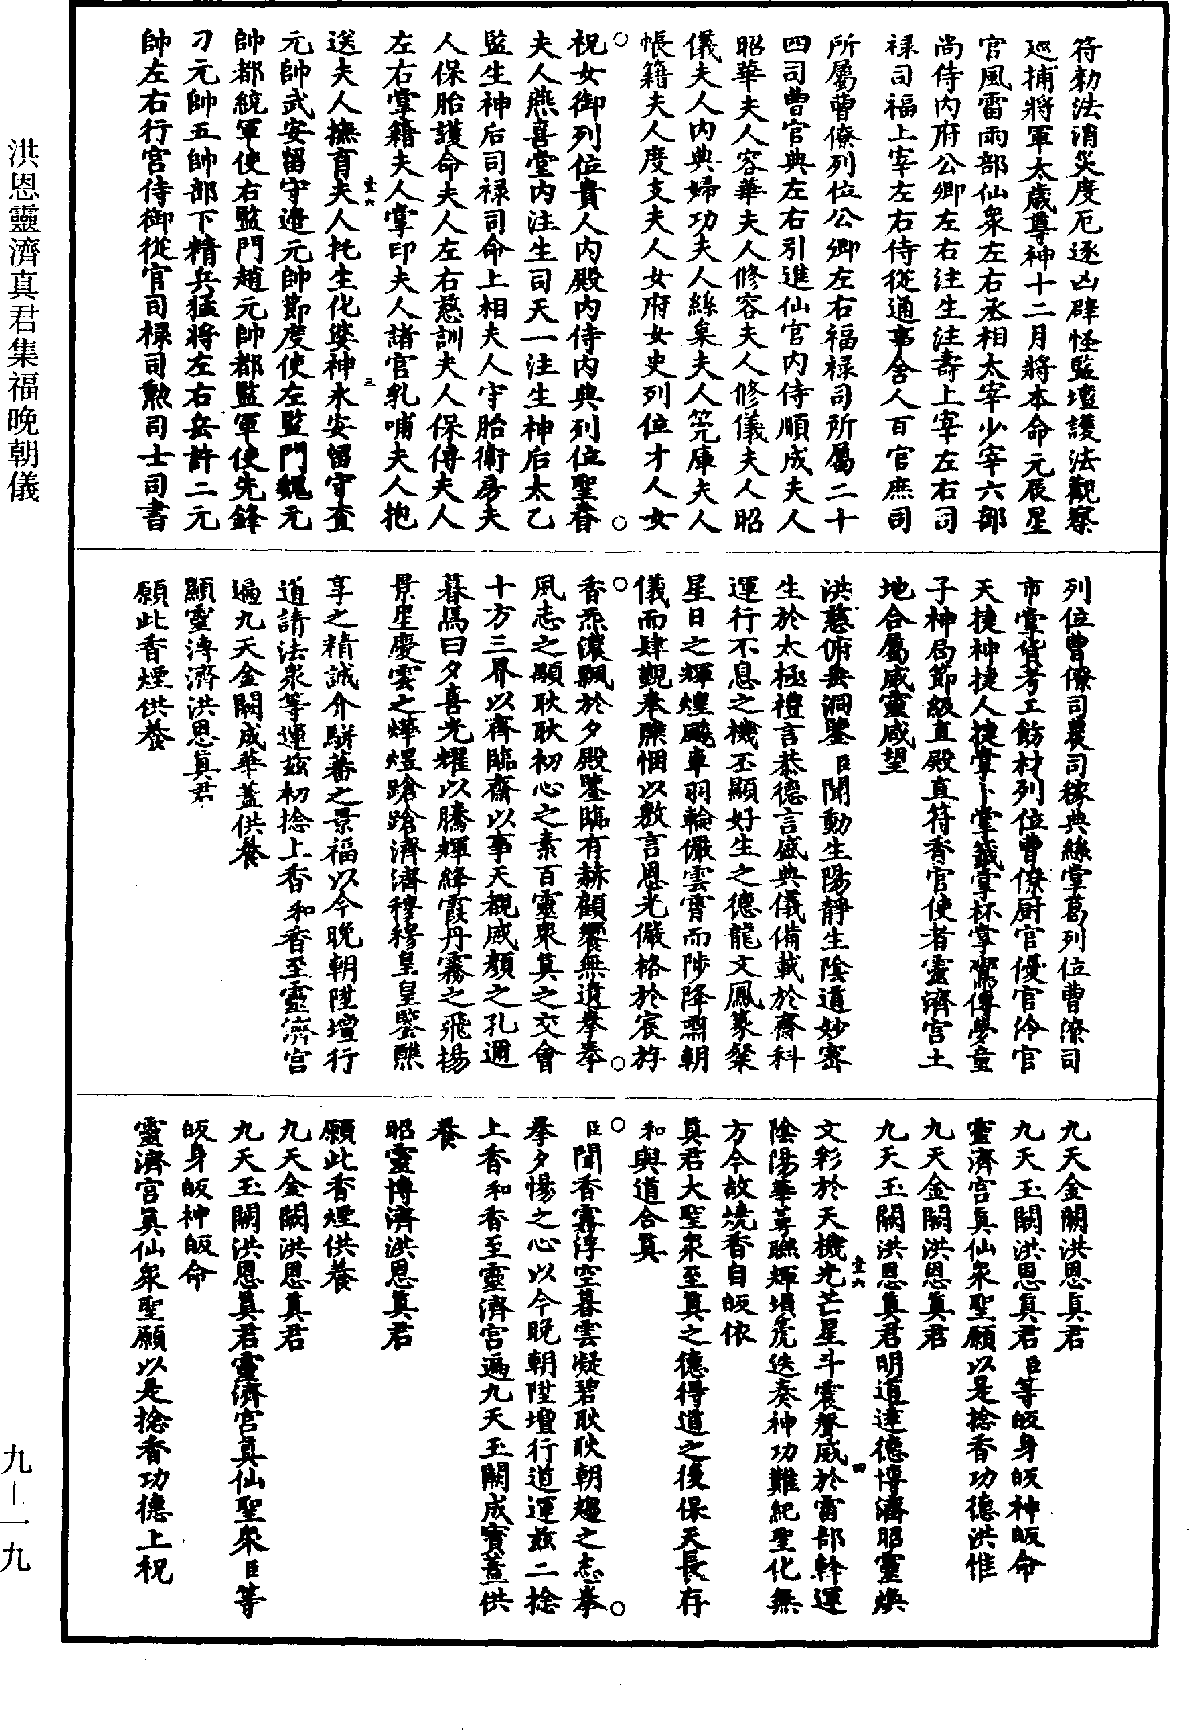 符勑法消災度厄逐凶辟怪監壇護法觀察
巡捕將軍太歲尊神十二月將本命元辰星
官風雷雨部仙衆左右丞相太宰少宰六部
尚侍內府公卿左右注生注壽上宰左右司
祿司福上宰左右侍從通事舍人百官庶司
所屬曹僚列位公卿左右福祿司所屬二十
四司曹官典左右引進仙官內侍順成夫人
昭華夫人容華夫人修容夫人修儀夫人昭
儀夫人內典婦功夫人絲枲夫人筦庫夫人
帳籍夫人度支夫人女府女史列位才人女
祝女御列位貴人內殿內侍內典列位聖眷
夫人燕喜堂內注生司天一注生神后太乙
監生神后司祿司命上相夫人守胎衛房夫
人保胎護命夫人左右慈訓夫人保傅夫人
左右掌籍夫人掌印夫人諸官乳哺夫人抱
送夫人撫育夫人托生化婆神永安留守查
元帥武安留守連元帥節度使左監門魏元
帥都統軍使右監門趙元帥都監軍使先鋒
刁元帥五帥部下精兵猛將左右岳許二元
帥左右行宮侍御從官司祿司勲司士司書
列位曹僚司農司稼典絲掌葛列位曹僚司
市掌貨考工飭材列位曹僚厨官優官伶官
天捷神捷人捷掌卜掌籤掌杯掌鸞傳夢童
子神局節級直殿直符香官使者靈濟宮土
地合屬威靈咸望
洪慈俯垂洞鑒臣聞動生陽靜生陰道妙寄
生於太極禮言恭德言盛典儀備載於齋科
運行不息之機丕顯好生之德龍文鳳篆粲
星日之輝煌飈車羽輪儼雲霄而陟降肅朝
儀而肆覲奉陳悃以敷言恩光儼格於宸旂
香炁濃飄於夕殿鑒臨有赫顧饗無遺拳拳
夙志之顒耿耿初心之素百靈衆真之交會
十方三界以齊臨齋以事天觀咸顏之孔邇
暮爲曰夕喜光耀以騰輝絳霞丹霧之飛揚
景星慶雲之燁煜蹌蹌濟濟穆穆皇皇鑒凞
享之精誠介駢蕃之景福以今晚朝陞壇行
道請法衆等運玆初捻上香和香至靈濟宮
遍九天金闕成華蓋供養
顯靈溥濟洪恩真君
願此香煙供養
九天金闕洪恩真君
九天玉闕洪恩真君臣等皈身皈神皈命
靈濟宮真仙衆聖願以是捻香功德洪惟
九天金闕洪恩真君
九天玉闕洪恩真君明道達德博濟昭靈煥
文彩於天機光芒星斗震聲威於雷部幹運
陰陽華萼聯輝塤箎迭奏神功難紀聖化無
方今故燒香自皈依
真君大聖衆至真之德得道之後保天長存
和與道合真
臣聞香霧浮空暮雲凝碧耿耿朝趨之志拳
拳夕惕之心以今晚朝陞壇行道運玆二捻
上香和香至靈濟宮遍九天玉闕成寶蓋供
養
昭靈博濟洪恩真君
願此香煙供養
九天金闕洪恩真君
九天玉闕洪恩真君靈濟宮真仙聖衆臣等
皈身皈神皈命
靈濟宮真仙衆聖願以是捻香功德上祝
洪恩靈濟真君集福晚朝儀
九－一九